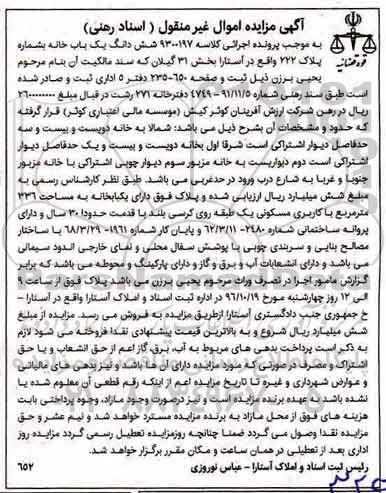 آگهی مزایده اموال غیر منقول ( اسناد رهنی)
قوه قضائیه
به موجب پرونده اجرائی کلاسه ۹۳۰۰۱۹۷ شش دانگ یک باب خانه بشماره
پلاک ۲۲۲ واقع در آستارا بخش ۳۱ گیلان که سند مالکیت آن بنام مرحوم
یحیی برزن ذیل ثبت و صفحه ۶۵۰-۲۳۵ دفتر ۵ اداری ثبت و صادر شده
است طبق سند رهنی شماره ۹۱/۱۱/۵-۴۷۴۹ دفترخانه ۲۷۱ رشت در قبال مبلغ ۲۶۰۰۰۰۰۰۰
ریال در رهن شرکت ارزش آفرینان کوثر کیش (موسسه مالی اعتباری کوثر) قرار گرفته
که حدود و مشخصات آن بشرح ذیل می باشد: شمالا به خانه دویست و بیست و سه
حدفاصل دیوار اشتراکی است شرقا اول بخانه دویست و بیست و یک حدفاصل دیوار
اشتراکی است دوم دیواریست به خانه مزبور سوم دیوار چوبی اشتراکی با خانه مزبور
جنوبا و غربا به شارع درب ورود در حدغربی می باشد. طبق نظر کارشناس رسمی به
مبلغ شش میلیارد ریال ارزیابی شده و پلاک فوق دارای یکبابخانه به مساحت ۳۳۶
مترمربع با کاربری مسکونی یک طبقه روی کرسی بلند با قدمت حدودا ۳۰ سال و دارای
پروانه ساختمانی شماره ۲۴۸۰-۶۲/۳/۱۱ و پایان کار شماره ۱۹۶۱-۶۸/۳/۲۹ با ساختار
مصالح بنایی و سربندی چوبی با پوشش سفال محلی و نمای خارجی اندود سیمانی
می باشد و دارای انشعابات آب و برق و گاز و دارای پارکینگ و محوطه می باشد که برابر
گزارش مامور اجرا در تصرف وراث مرحوم یحیی برزن می باشد پلاک فوق از ساعت ۹
الی ۱۲ روز چهارشنبه مورخ ۹۶/۱۰/۱۹ در اداره ثبت اسناد و املاک آستارا واقع در آستارا -
خ جمهوری جنب دادگستری آستارا ازطریق مزایده به فروش می رسد. مزایده از مبلغ
شش میلیارد ریال شروع و به بالاترین قیمت پیشنهادی نقدا فروخته می شود لازم
به ذکر است پرداخت بدهی های مربوط به آب، برق گاز اعم از حق انشعاب و یا حق
اشتراک و مصرف در صورتی که مورد مزایده دارای آن ها باشد و نیز بدهی های مالیاتی
و عوارض شهرداری و غیره تا تاریخ مزایده اعم از اینکه رقم قطعی آن معلوم شده یا
نشده باشد به عهده برنده مزایده است و نیز درصورت وجود مازاد، وجوه پرداختی بابت
هزینه های فوق از محل مازاد به برنده مزایده مسترد خواهد شد و نیم عشر و حق
مزایده نقدا وصول می گردد ضمنا چنانچه روزمزایده تعطیل رسمی گردد مزایده روز
اداری بعد از تعطیلی در همان ساعت و مکان مقرر برگزار خواهد شد.
رئیس ثبت اسناد و املاک آستارا - عباس نوروزی
۶۵۲